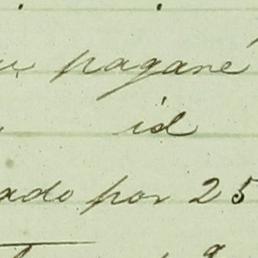 pagaré
id
ado por 25